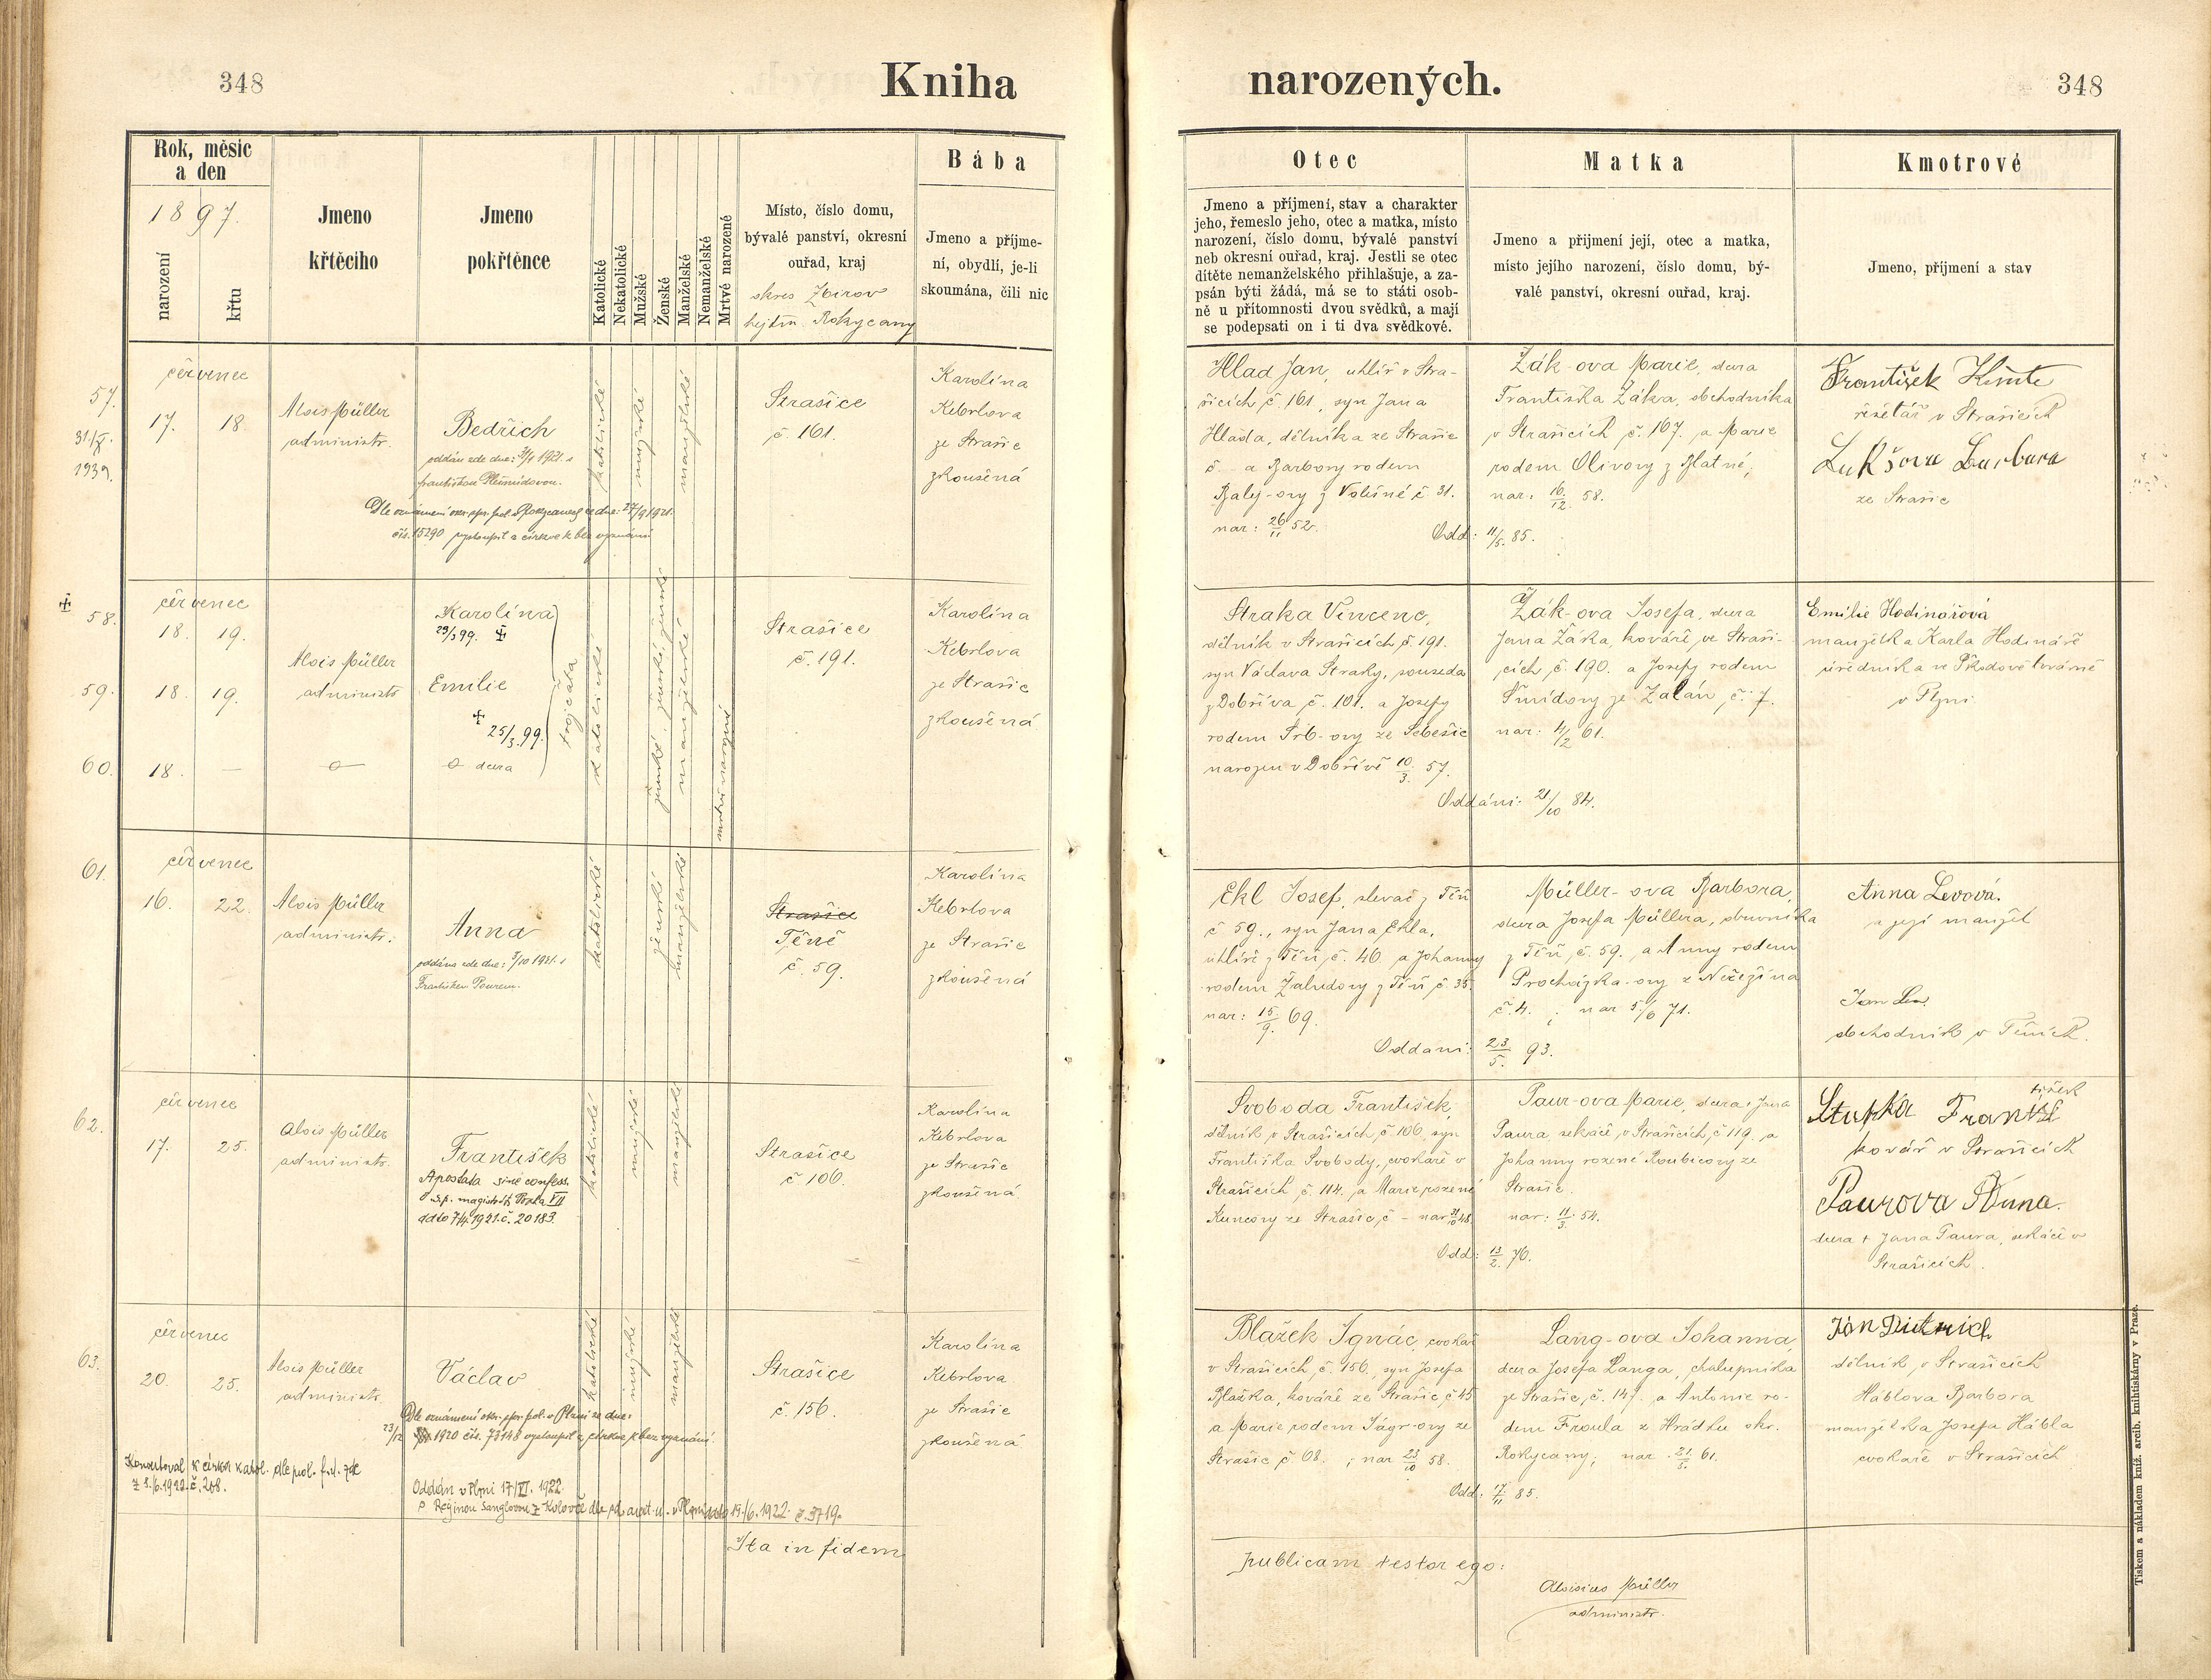 348
Kniha
narozených.
348
Rok, měsíc
a den
1897.
narození
křtu
Jmeno
křtěcího
Jmeno
pokřtěnce
Katolické
Nekatolické
Mužské
Ženské
Manželské
Nemanželské
Mrtvé narozené
Místo, číslo domu,
bývalé panství, okresní
ouřad, kraj
okres Zbirov
hejtm. Rokycany
Bába
Jmeno a příjme-
ní, obydlí, je-li
skoumána, čili nic
Otec
Jmeno a příjmení, stav a charakter
jeho, řemeslo jeho, otec a matka, místo
narození, číslo domu, bývalé panství
neb okresní ouřad, kraj. Jestli se otec
dítěte nemanželského přihlašuje, a za-
psán býti žádá, má se to státi osob-
ně u přítomnosti dvou svědků, a mají
se podepsati on i ti dva svědkové.
Matka
Jmeno a přijmení její, otec a matka,
místo jejího narození, číslo domu, bý-
valé panství, okresní ouřad, kraj.
Kmotrové
Jmeno, příjmení a stav
57.
31./X.
1939.
červenec
17. 18.
Alois Müller
administr.
Bedřich
oddán zde dne:
1921. s
Františkou
Dle oznámení okr. spr. pol. v Rokycanech ze dne: 27/9 1921.
čís. 15290 vystoupil z církve k bez vyznání
katolické
mužské
manželské
Strašice
č. 161.
Karolína
Kebrlova
ze Strašic
zkoušená
Hlad Jan, uhlíř v Stra-
šicích č. 161, syn Jana
Hlada, dělníka ze Strašic
č. - a Barbory rodem
Balej-ovy z Volšiné č. 31.
nar: 26/11 52.
Žák-ova Marie, dcera
Františka Žáka, obchodníka
v Strašicích č. 167. a Marie
rodem Olivovy z Blatné;
nar: 16/12. 58.
Odd: 11/5. 85.
František
řešetář v Strašicích
Lukšova Barbora
ze Strašic
58.
červenec
18. 19.
Alois Müller
administr
Karolína
29/3 99. ‡
59. 18. 19.
Emilie
+
25/3. 99.
60. 18. —
dcera
trojčata
katolické
ženské, ženské, ženské
manželské
mrtvě narozené
Strašice
č. 191.
Karolína
Kebrlova
ze Strašic
zkoušená
Straka Vincenc,
dělník v Strašicích č. 191.
syn Václava Straky, souseda
z Dobříva č. 101. a Josefy
rodem Srb-ovy ze Sebešic
narozen v Dobřívě 10/3. 57.
Žák-ova Josefa, dcera
Jana Žáka, kováře ve Straši-
cích č. 190. a Josefy rodem
Šmídovy ze Zalán, č. 7.
nar: 4/2 61.
Oddáni: 21/10 84.
Emilie Hodinářová
manželka Karla Hodináře
úředníka ve Škodově továrně
v Plzni
61.
červenec
16. 22.
Alois Müller
administr.
Anna
oddána zde dne: 3/10 1921. s
Františkem
katolické
ženské
manželské
Strašice
Těně
č. 59.
Karolína
Kebrlova
ze Strašic
zkoušená
Ekl Josef, slevač z Těň
č 59., syn Jana Ekla,
uhlíře z Těň, č. 46 a Johanny
rodem Žaludovy z Těň č. 35.
nar: 15/9. 69.
Müller-ova Barbora,
dcera Josefa Müllera,
z Těň, č. 59. a Anny rodem
Procházka-ovy z Nečezína
č. 4. ; nar 5/6 71.
Oddani: 23/5. 93.
Anna Levová.
a její manžel
Jan Lev
obchodník v Těních.
62.
červenec
17. 25.
Alois Müller
administr.
František
Apostata sine confess.
magistr. Praha VII
ddto 7/4. 1921. č. 20183.
katolické
mužské
manželské
Strašice
č 106.
Karolína
Kebrlova
ze Strašic
zkoušená.
Svoboda František,
dělník v Strašicích, č 106, syn
Františka Svobody, cvokaře v
Strašicích, č. 114. a Marie rozené
Kuncovy ze Strašic, č - nar 31/10 48.
Paur-ova Marie, dcera + Jana
Paura, sekáče, v Strašicích, č 119. a
Johanny rozené Roubicovy ze
Strašic.
nar: 11/3. 54.
Odd: 13/2. 76.
Stupka František
kovář v Strašicích
Paurova Anna.
dcera + Jana Paura, sekáče v
Strašicích.
63.
červenec
20. 25.
Alois Müller
administr.
Václav
Dle oznámení okr. spr. pol. v Plzni ze dne:
23/12 1920 čís. 73148 vystoupil z církve k bez vyznání.
Konvertoval k církvi katol. dle pol. f. ú. zde
z 3./6. 1922. č. 208.
Oddán v Plzni 17/VI. 1922.
s Reginou Sanglovou z Kolovče dle
v Plzni ddto 19./6. 1922. č. 3719.
katolické
mužské
manželské
Strašice
č. 156.
Karolína
Kebrlova
ze Strašic
zkoušená
Blažek Ignác, cvokař
v Strašicích, č. 156, syn Josefa
Blažka, kováře ze Strašic, č 45
a Marie rodem Jágr-ovy ze
Strašic č. 68. ; nar 23/10 58.
Lang-ova Johanna,
dcera Josefa Langa, chalupníka
ze Strašic, č. 147. a Antonie ro-
dem Froula z Hrádku okr.
Rokycany; nar. 21/5. 61.
Odd: 17/11 85.
Jan Dietrich
dělník v Strašicích
Háblova Barbora
manželka Josefa Hábla
cvokaře v Strašicích
Ita in fidem
publicam testor ego:
Aloisius Müller
administr.
Tiskem a nákladem kníž. arcib. knihtiskárny v Praze.